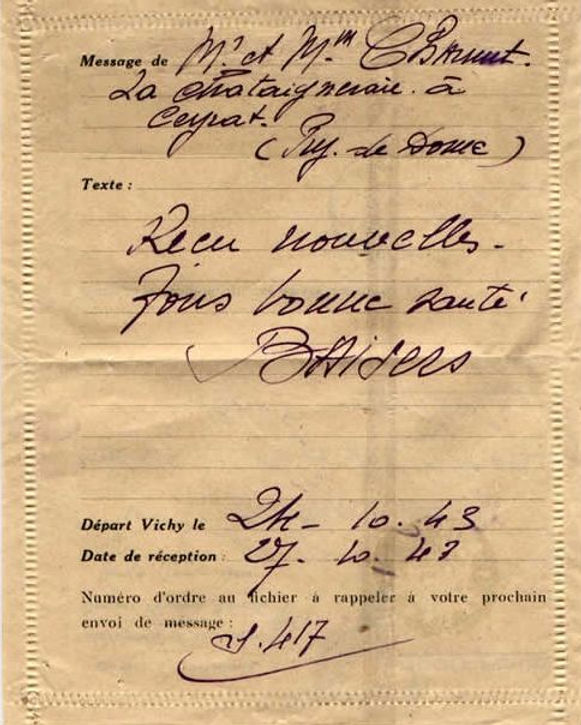 Message de Mr et Mm
La chataigneraie. à
Ceyrat.
(Puy. de Dome)
Texte :
Recu nouvelles.
Tous bonne santé
BAisers
Départ Vichy le 24 - 10. 43
Date de réception : 27. 10. 43
Numéro d'ordre au fichier à rappeler à votre prochain
envoi de message : 417